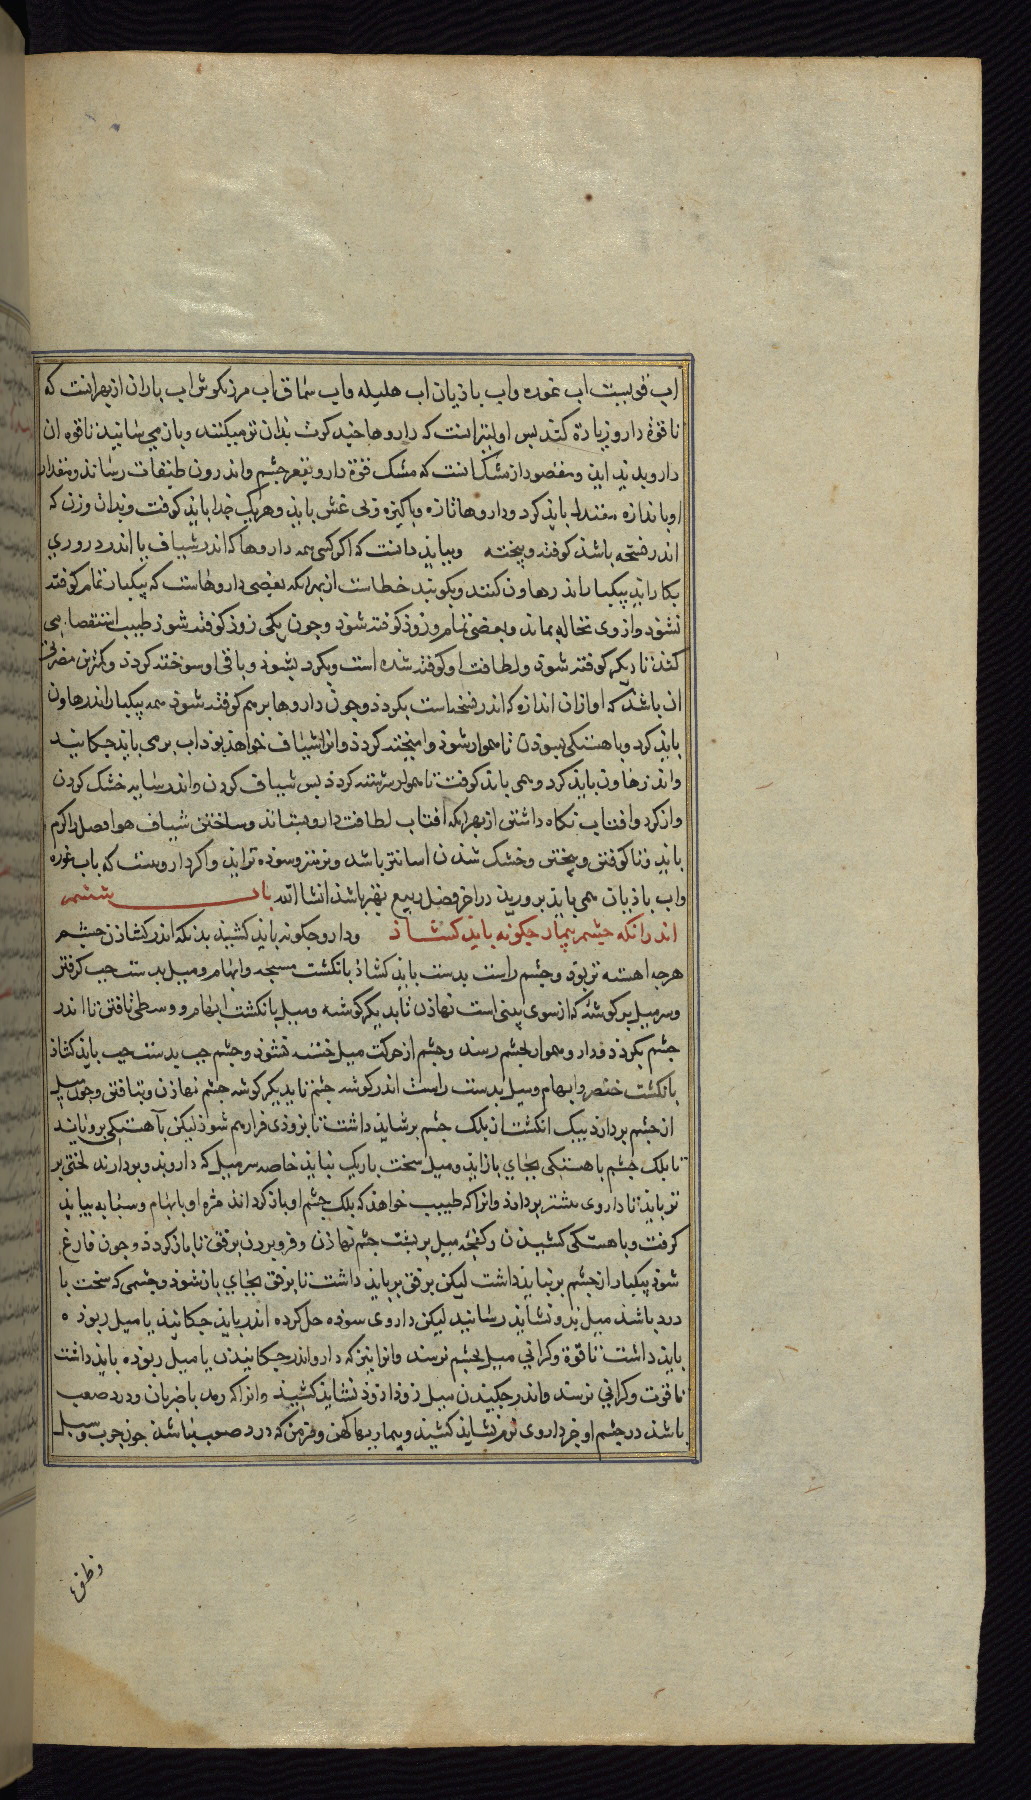 اب اب غوره واب باذیان اب هلیله واب سماق اب مرزنکوش اب باران از بهر انست که
تا قوة دارو زیادة کند بس اولیتر انست که داروها بذان تر میکنند وباز می تا قوه ان
دارو بدید اید ومقصود از مشک انست که مشک قوة دارو بقعر جشم واندرون طبقات رساند ومقدار
او باندازه باید کرد وداروها تازه وباکیزه وبی غش باید وهر یک جدا باید کوفت وبدان وزن که
اندر نسخه باشذ کوفته وبیخته وبباید دانست که اکر کسی همه داروها که اندر شیاف یا اندر دروری
بکار اید بیکبار اندر هاون کنند وبکوبند خطاست از بهر انکه بعضی داروهاست که بیکبار تمام کوفته
نشود واز وی نخاله بماند وبعضی تمام وزوذ کوفته شود وجون یکی زوذ کوفته شوذ طبیب استقصا می
کند تا دیکر کوفته شود ولطافت او کوفته شده است وبکرد بشود وباقی او سوخته کردد وکمترین مضرتی
ان باشد که او از ان اندازه که اندر نسخه است بکردد وجون داروها بر هم کوفته شود همه بیکبار اندر هاون
باید کرد وباهستکی بسوذن تا هموار شوذ وامیخته کردذ وانرا شیاف خواهذ بود اب بر می باید جکانید
واندر هاون باید کرد و همی باید کوفت تا هموار سرشته کردد بس شیاف کردن واندر سایه خشک کردن
واز کرد وافتاب نکاه داشتن از بهر انکه افتاب لطافت دارو بستاند وساختن شیاف هوا فصل را کرم
باید وتا کوفتن وبیختن وخشک شدن اسانتر باشد وسوده تر اید واکر داروست که باب غوره
واب باذیان همی باید برورید در اخر فصل ربیع بهتر باشذ انشاالله باب ششم
اندر انکه جشم بیمار جکونه باید کشاذ ودارو جکونه باید کشید بدنکه اندر کشاذن جشم
هرجه اهسته تر بود وجشم راست بدست باید کشاذ بانکشت مسبحه وابهام ومیل بدست جب کرفتن
وسر میل بر کوشه که از سوی بینی است نهاذن تا بدیکر کوشه ومیل بانکشت ابهام ووسطی تافتن تا اندر
جشم بکردد ودارو هموار بجشم رسد وجشم از حرکت میل خسته نشود وجشم جب بدست جب باید کشاذ
بانکشت خنصر وابهام ومیل بدست راست اندر کوشه جشم تا بدیکر کوشه جشم نهاذن وبتافتن وجون میل
از جشم بردارد بیک انکشت از بلک جشم بر شاید داشت تا بزوذی فراز هم شوذ لیکن باهستکی برو باید
تا بلک جشم باهستکی بجای باز اید ومیل سخت باریک نباید خاصه سر میل که دارو بذو بردارند لختی بر
تر باید تا داروی بیشتر بردارد وانرا که طبیب خواهد که بلک جشم او باز کرداند مژه او بابهام وسبابه بباید
کرفت وباهستکی کشیدن وکفجه میل بر بشت جشم نهاذن وفرو بردن برفق تا باز کردد وجون فارغ
شوذ بیکبار از جشم بر نباید داشت لیکن برفق بر باید داشت تا برفق بجای باز شود وجشمی که سخت با
درد باشد میل بدو نشاید رسانید لیکن داروی سوده حل کرده اندر باید جکانید یا میل ربوده
باید داشت تا قوة وکرانی میل بجشم نرسد وانرا نیز که دارو اندر جکانیدن یا میل ربوده باید داشت
تا قوت وکرانی نرسد واندر جکیدن میل زوذا زوذ نشاید کشید وانرا که رمد با ضربان ودرد صعب
باشد در جشم او جز داروی نرم نشاید کشید وبیماریها کهن ومزمن که درد صعب نباشد جون جرب وسبل